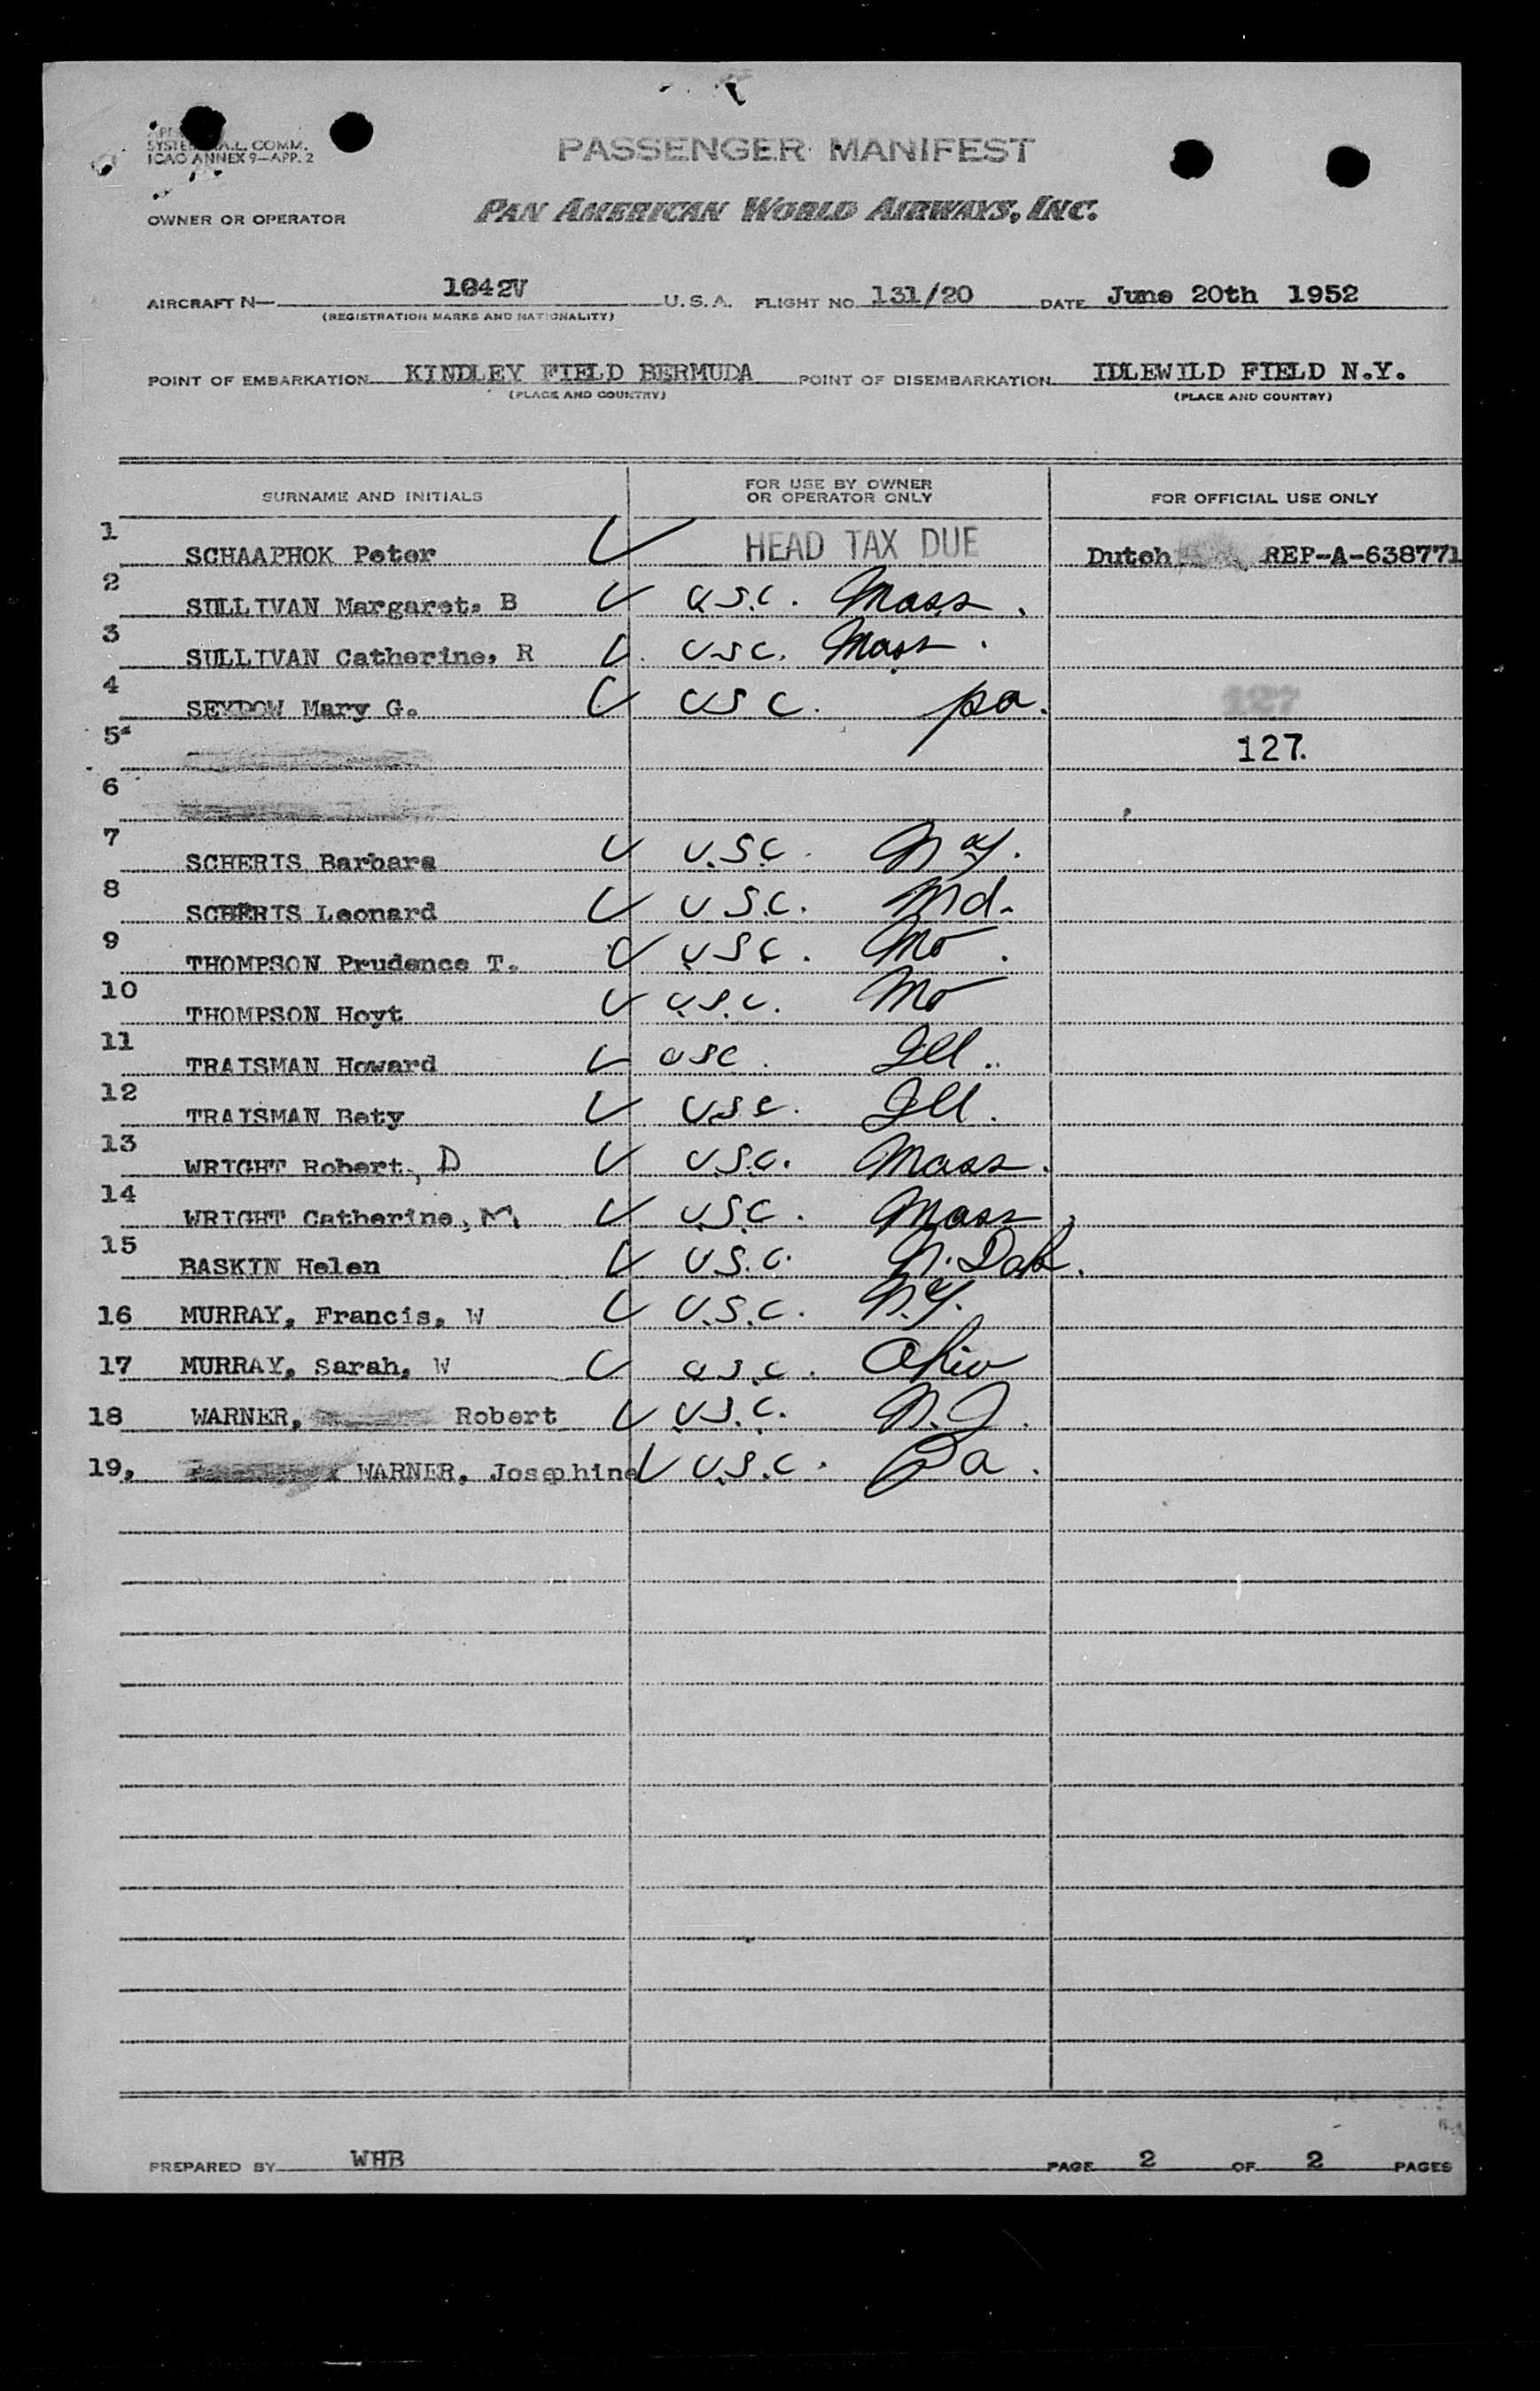 SYSTEM A.L. COMM.
ICAO ANNEX 9—APP. 2
PASSENGER MANIFEST
OWNER OR OPERATOR PAN AMERICAN WORLD AIRWAYS, INC.
AIRCRAFT N— 1042V U.S.A. FLIGHT NO. 131/20 DATE June 20th 1952
(REGISTRATION MARKS AND NATIONALITY)
POINT OF EMBARKATION KINDLEY FIELD BERMUDA POINT OF DISEMBARKATION IDLEWILD FIELD N.Y.
(PLACE AND COUNTRY) (PLACE AND COUNTRY)
SURNAME AND INITIALS FOR USE BY OWNER OR OPERATOR ONLY FOR OFFICIAL USE ONLY
1 SCHAAPHOK Peter HEAD TAX DUE Dutch REP-A-638771
2 SULLIVAN Margaret. B U.S.C. Mass.
3 SULLIVAN Catherine, R U.S.C. Mass.
4 SEYDOW Mary G. U S C. pa. 127
5 127.
6
7 SCHERTS Barbara U.S.C. N.Y.
8 SCHERTS Leonard U.S.C. Md.
9 THOMPSON Prudence T. U.S.C. Mo.
10 THOMPSON Hoyt U.S.C. Mo
11 TRAISMAN Howard USC. Ill.
12 TRAISMAN Bety U.S.C. Ill.
13 WRIGHT Robert, D U.S.C. Mass.
14 WRIGHT Catherine, M U.S.C. Mass.
15 BASKIN Helen U.S.C. N. Dak.
16 MURRAY, Francis, W U.S.C. N.Y.
17 MURRAY, Sarah, W U.S.C. Ohio
18 WARNER, Robert U.S.C. N.J.
19, WARNER, Josephine U.S.C. Pa.
PREPARED BY WHB PAGE 2 OF 2 PAGES